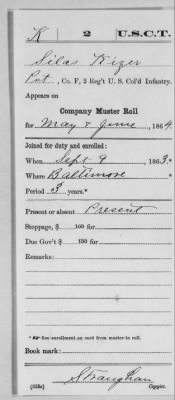 K 2 U.S.C.T.
Silas Kizer
Pvt, Co. F, 2 Reg't U. S. Col'd Infantry.
Appears on
Company Muster Roll
for May & June, 1864.
Joined for duty and enrolled:
When Sept 9, 1863.*
Where Baltimore
Period 3 years.*
Present or absent Present
Stoppage, $ 100 for
Due Gov't $ 100 for
Remarks:
* See enrollment on card from muster-in roll.
Book mark:
Straughan
(358c) Copyist.